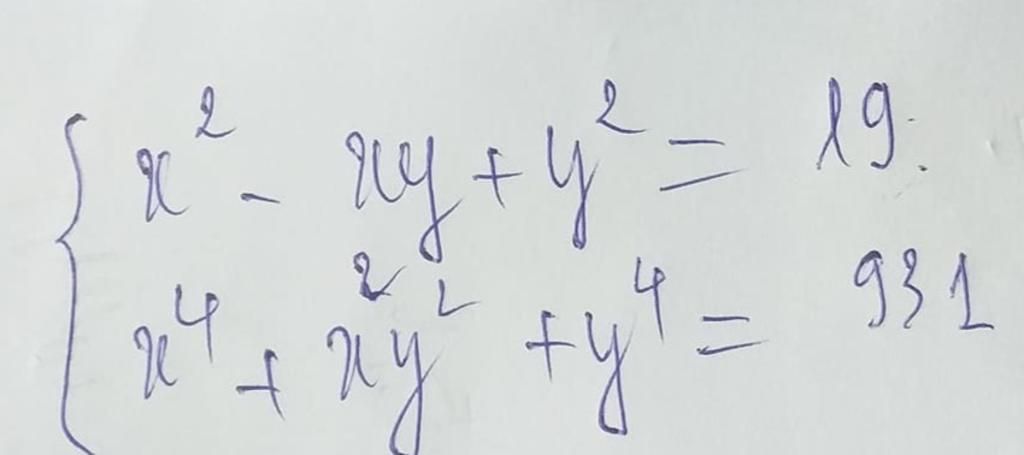 x² - xy + y² = 19.
x⁴ + x²y² + y⁴ = 931